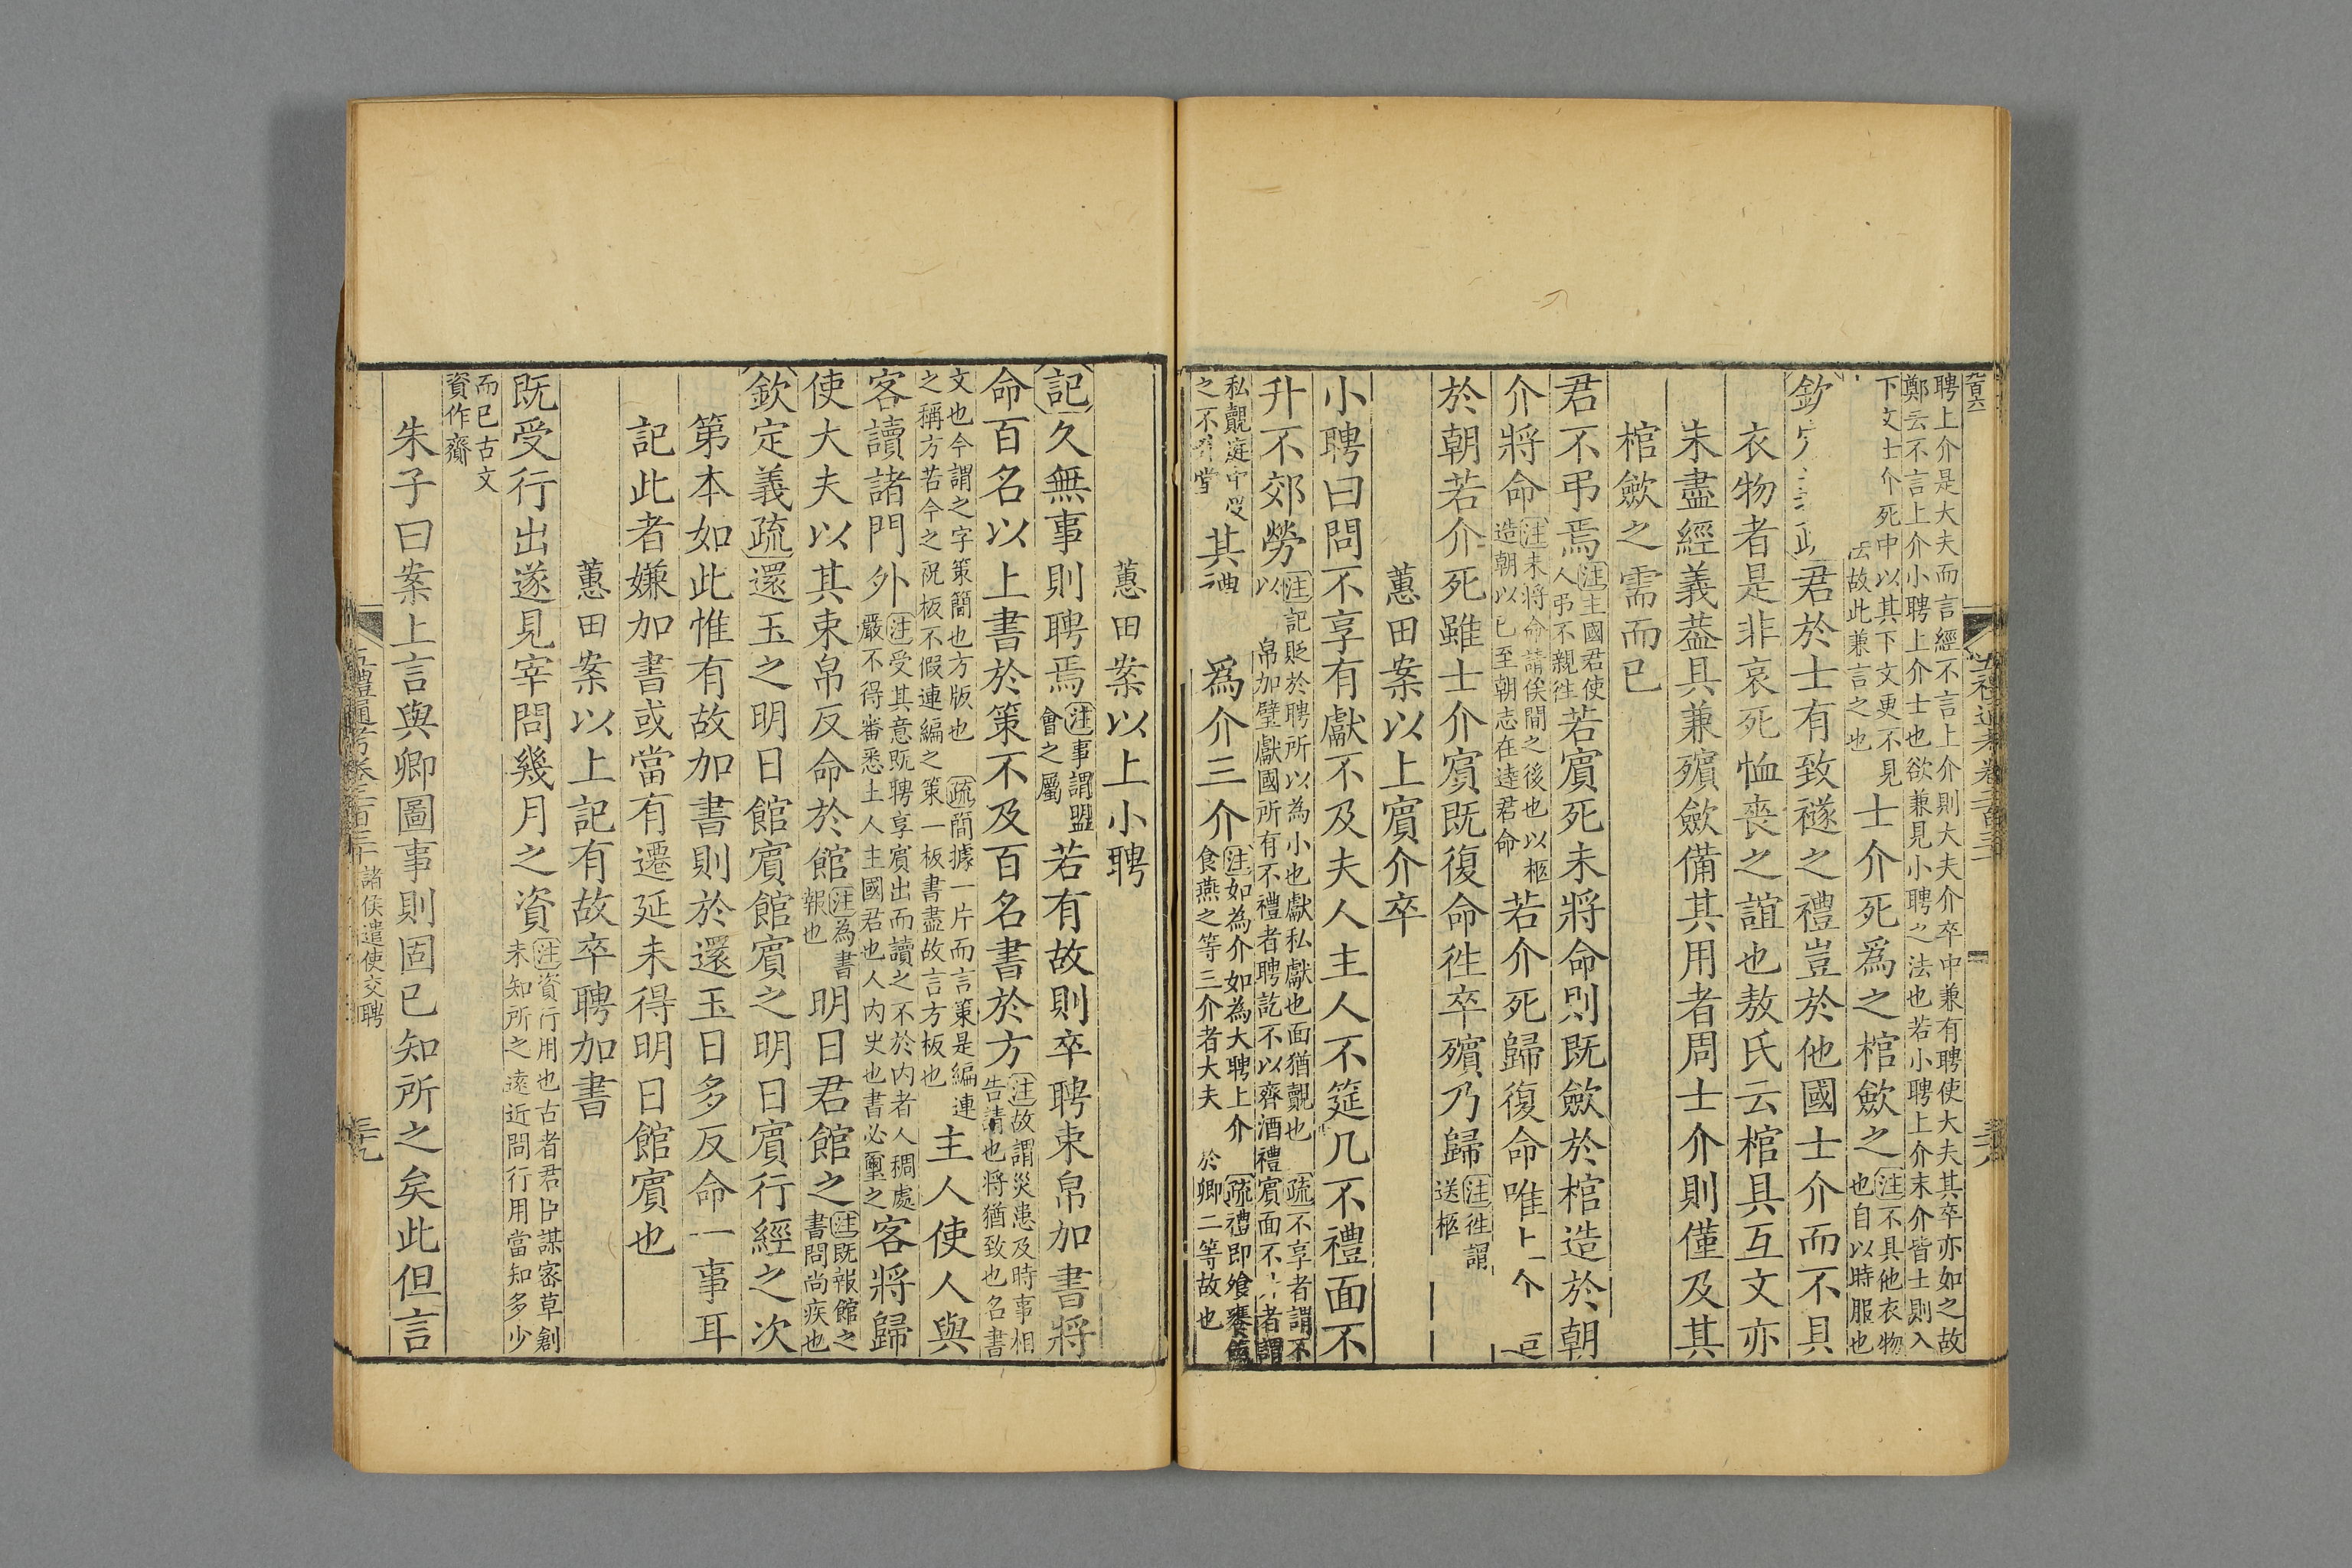 聘上介是大夫而言經不言上介則大夫介卒中兼有聘使大夫其卒亦如之故
鄭云不言上介小聘上介士也欲兼見小聘之法也若小聘上介末介皆士則入
下文士介死中以其下文更不見
法故此兼言之也
士介死爲之棺斂之
注不具他衣物
也自以時服也
欽
君於士有致襚之禮豈於他國士介而不具
衣物者是非哀死恤喪之誼也敖氏云棺具互文亦
未盡經義葢具兼殯斂備其用者周士介則僅及其
棺斂之需而已
君不弔焉
注主國君使
人弔不親往
若賓死未將命則既斂於棺造於朝
介將命
注未將命請俟間之後也以柩
造朝以已至朝志在逹君命
若介死歸復命唯
於朝若介死雖士介賓既復命徃卒殯乃歸
注徃謂
送柩
蕙田案以上賓介卒
小聘曰問不享有獻不及夫人主人不筵几不禮面不
升不郊勞
注記貶於聘所以為小也獻私獻也面猶覿也
疏不享者謂不
以
帛加璧獻國所有不禮者聘訖不以齊酒禮賓面不
者謂
私覿庭中受
之不升堂
其禮
爲介三介
注如為介如為大聘上介
疏禮即飧饔餼
食燕之等三介者大夫
於卿二等故也
五禮通考卷二百三十
三十八
蕙田案以上小聘
記久無事則聘焉
注事謂盟
會之屬
若有故則卒聘束帛加書將
命百名以上書於策不及百名書於方
注故謂災患及時事相
告請也將猶致也名書
文也今謂之字策簡也方版也
疏簡據一片而言策是編連
之稱方若今之祝板不假連編之策一板書盡故言方板也
主人使人與
客讀諸門外
注受其意既聘享賓出而讀之不於内者人稠處
嚴不得審悉主人主國君也人内史也書必璽之
客將歸
使大夫以其束帛反命於館
注為書
報也
明日君館之
注既報館之
書問尚疾也
欽定義疏還玉之明日館賓館賓之明日賓行經之次
第本如此惟有故加書則於還玉日多反命一事耳
記此者嫌加書或當有遷延未得明日館賓也
蕙田案以上記有故卒聘加書
既受行出遂見宰問幾月之資
注資行用也古者君臣謀密草創
未知所之遠近問行用當知多少
而已古文
資作齎
朱子曰案上言與卿圖事則固已知所之矣此但言
五禮通考卷二百三十
諸侯遣使交聘
三十九